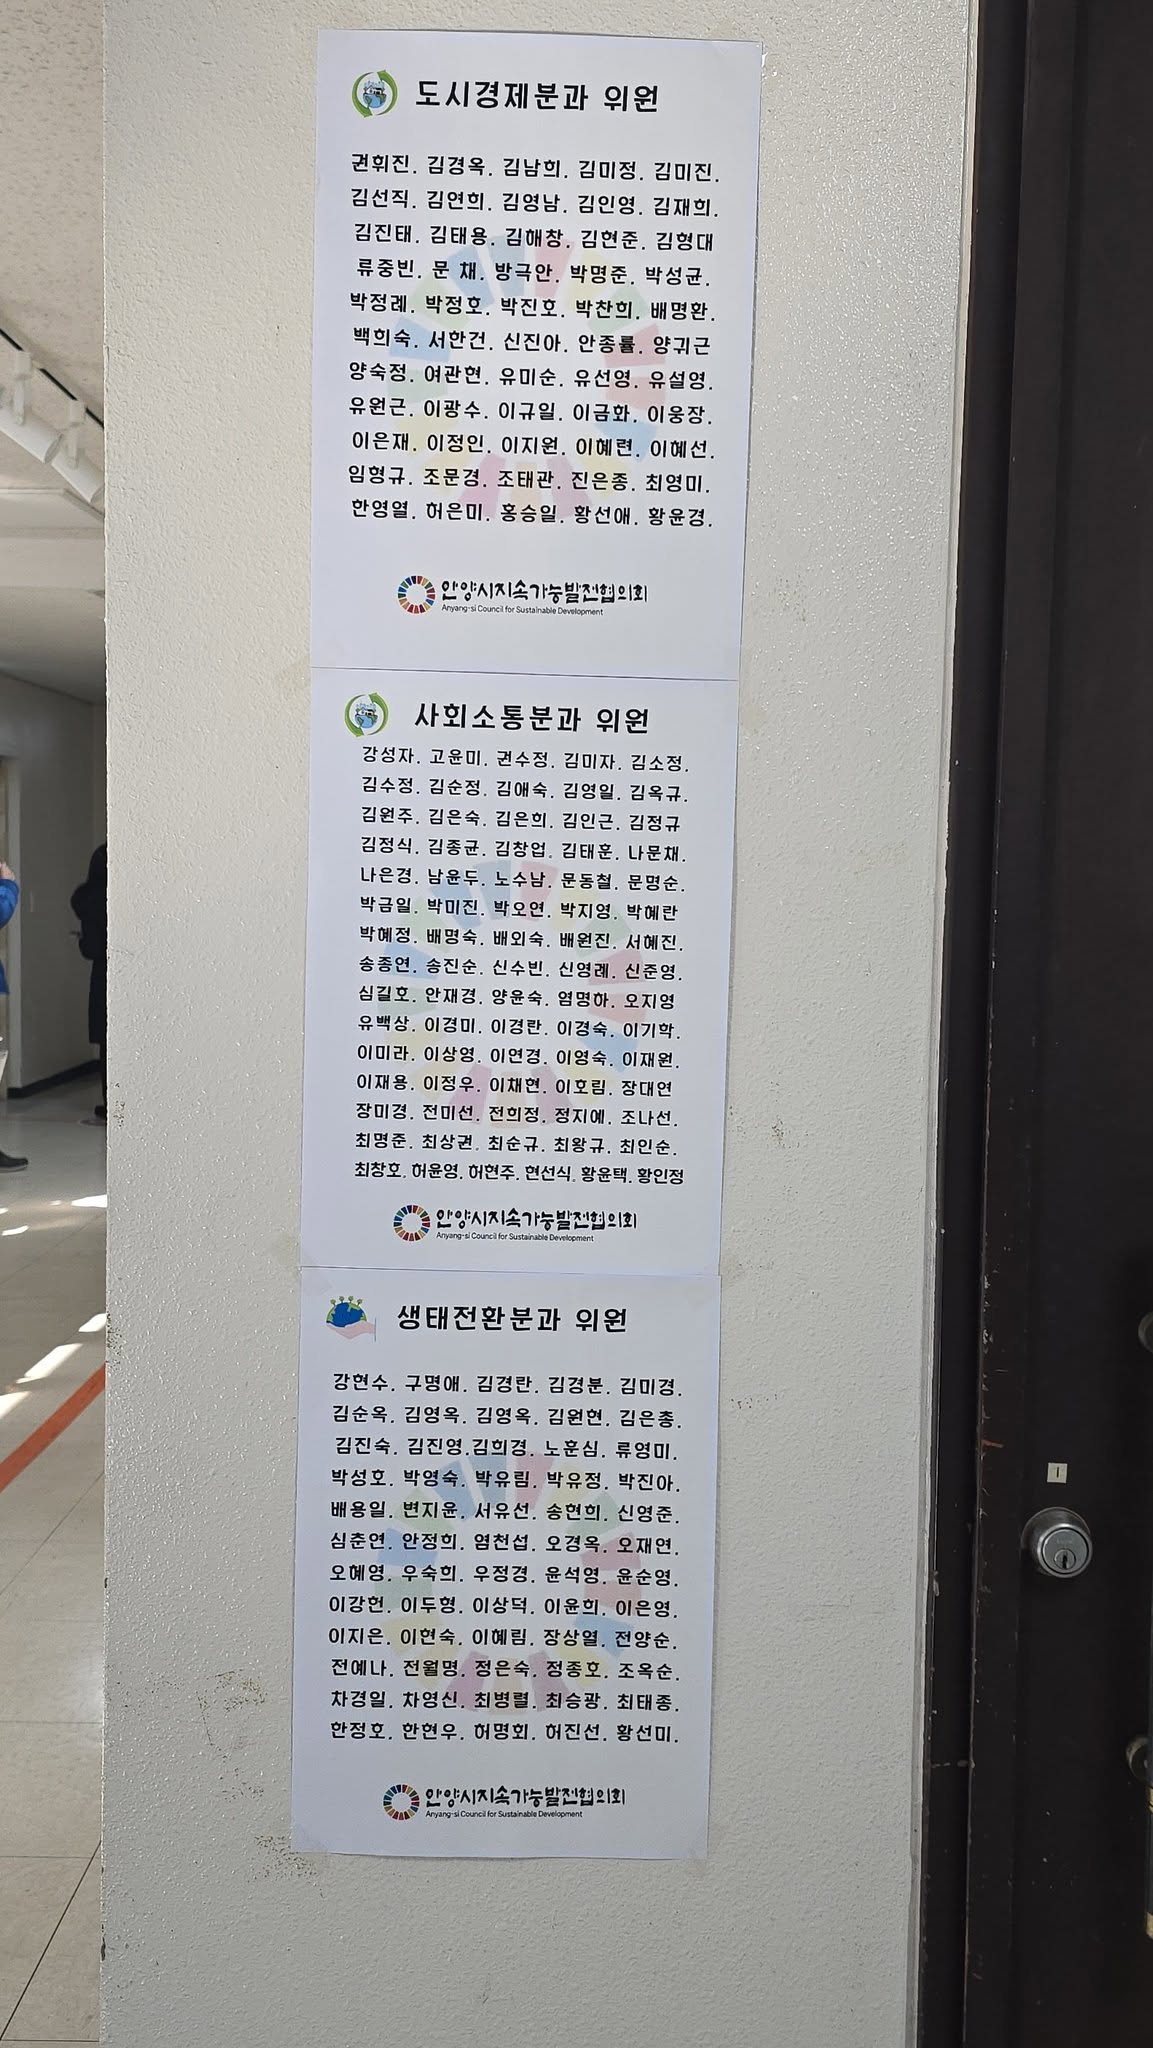 도시경제분과 위원
권휘진. 김경옥. 김남희. 김미정. 김미진.
김선직. 김연희. 김영남. 김인영. 김재희.
김진태. 김태용. 김해창. 김현준. 김형대
류중빈. 문 채. 방극안. 박명준. 박성균.
박정례. 박정호. 박진호. 박찬희. 배명환.
백희숙. 서한건. 신진아. 안종률. 양귀근
양숙정. 여관현. 유미순. 유선영. 유설영.
유원근. 이광수. 이규일. 이금화. 이웅장.
이은재. 이정인. 이지원. 이혜련. 이혜선.
임형규. 조문경. 조태관. 진은종. 최영미.
한영열. 허은미. 홍승일. 황선애. 황윤경.
안양시지속가능발전협의회
Anyang-si Council for Sustainable Development
사회소통분과 위원
강성자. 고윤미. 권수정. 김미자. 김소정.
김수정. 김순정. 김애숙. 김영일. 김옥규.
김원주. 김은숙. 김은희. 김인근. 김정규
김정식. 김종균. 김창업. 김태훈. 나문채.
나은경. 남윤두. 노수남. 문동철. 문명순.
박금일. 박미진. 박오연. 박지영. 박혜란
박혜정. 배명숙. 배외숙. 배원진. 서혜진.
송종연. 송진순. 신수빈. 신영례. 신준영.
심길호. 안재경. 양윤숙. 염명하. 오지영
유백상. 이경미. 이경란. 이경숙. 이기학.
이미라. 이상영. 이연경. 이영숙. 이재원.
이재용. 이정우. 이채현. 이호림. 장대연
장미경. 전미선. 전희정. 정지예. 조나선.
최명준. 최상권. 최순규. 최왕규. 최인순.
최창호. 허윤영. 허현주. 현선식. 황윤택. 황인정
안양시지속가능발전협의회
Anyang-si Council for Sustainable Development
생태전환분과 위원
강현수. 구명애. 김경란. 김경분. 김미경.
김순옥. 김영옥. 김영옥. 김원현. 김은총.
김진숙. 김진영.김희경. 노훈심. 류영미.
박성호. 박영숙. 박유림. 박유정. 박진아.
배용일. 변지윤. 서유선. 송현희. 신영준.
심춘연. 안정희. 염천섭. 오경옥. 오재연.
오혜영. 우숙희. 우정경. 윤석영. 윤순영.
이강헌. 이두형. 이상덕. 이윤희. 이은영.
이지은. 이현숙. 이혜림. 장상열. 전양순.
전예나. 전월명. 정은숙. 정종호. 조옥순.
차경일. 차영신. 최병렬. 최승광. 최태종.
한정호. 한현우. 허명회. 허진선. 황선미.
안양시지속가능발전협의회
Anyang-si Council for Sustainable Development